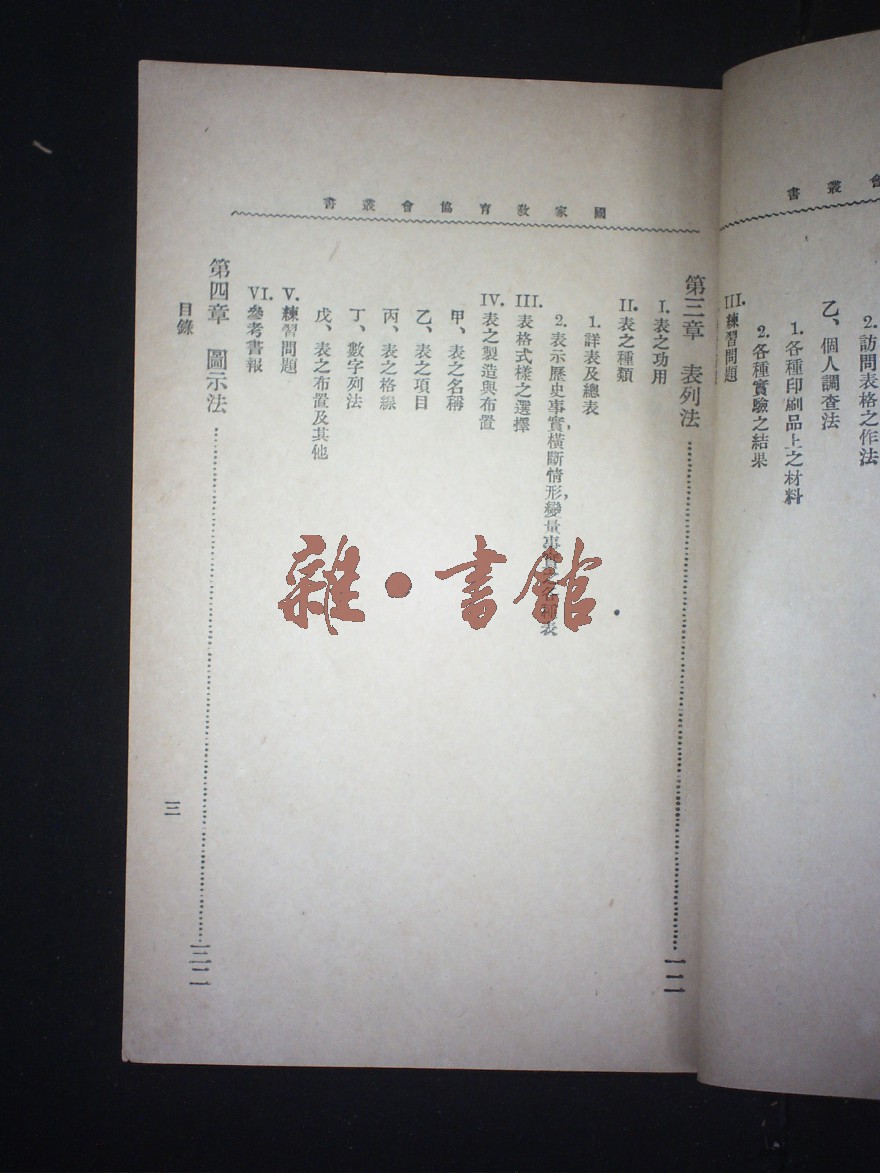 會叢書
2. 訪問表格之作法
乙、個人調查法
1. 各種印刷品上之材料
2. 各種實驗之結果
III. 練習問題
國家教育協會叢書
第三章 表列法……一二
I. 表之功用
II. 表之種類
1. 詳表及總表
2. 表示歷史事實,橫斷情形,變量事實之各種表
III. 表格式樣之選擇
IV. 表之製造與布置
甲、表之名稱
乙、表之項目
丙、表之格線
丁、數字列法
戊、表之布置及其他
V. 練習問題
VI. 參考書報
第四章 圖示法……
目錄
三
雜·書館